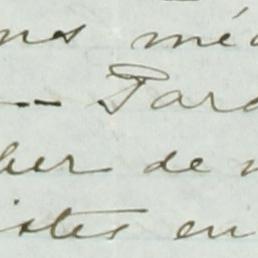 ns mé
-- Pard
ber de n
istes en